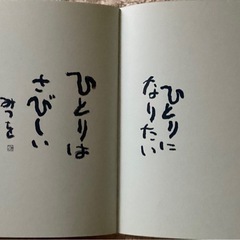 ひとりに
なりたい
ひとりは
さびしい
みつを